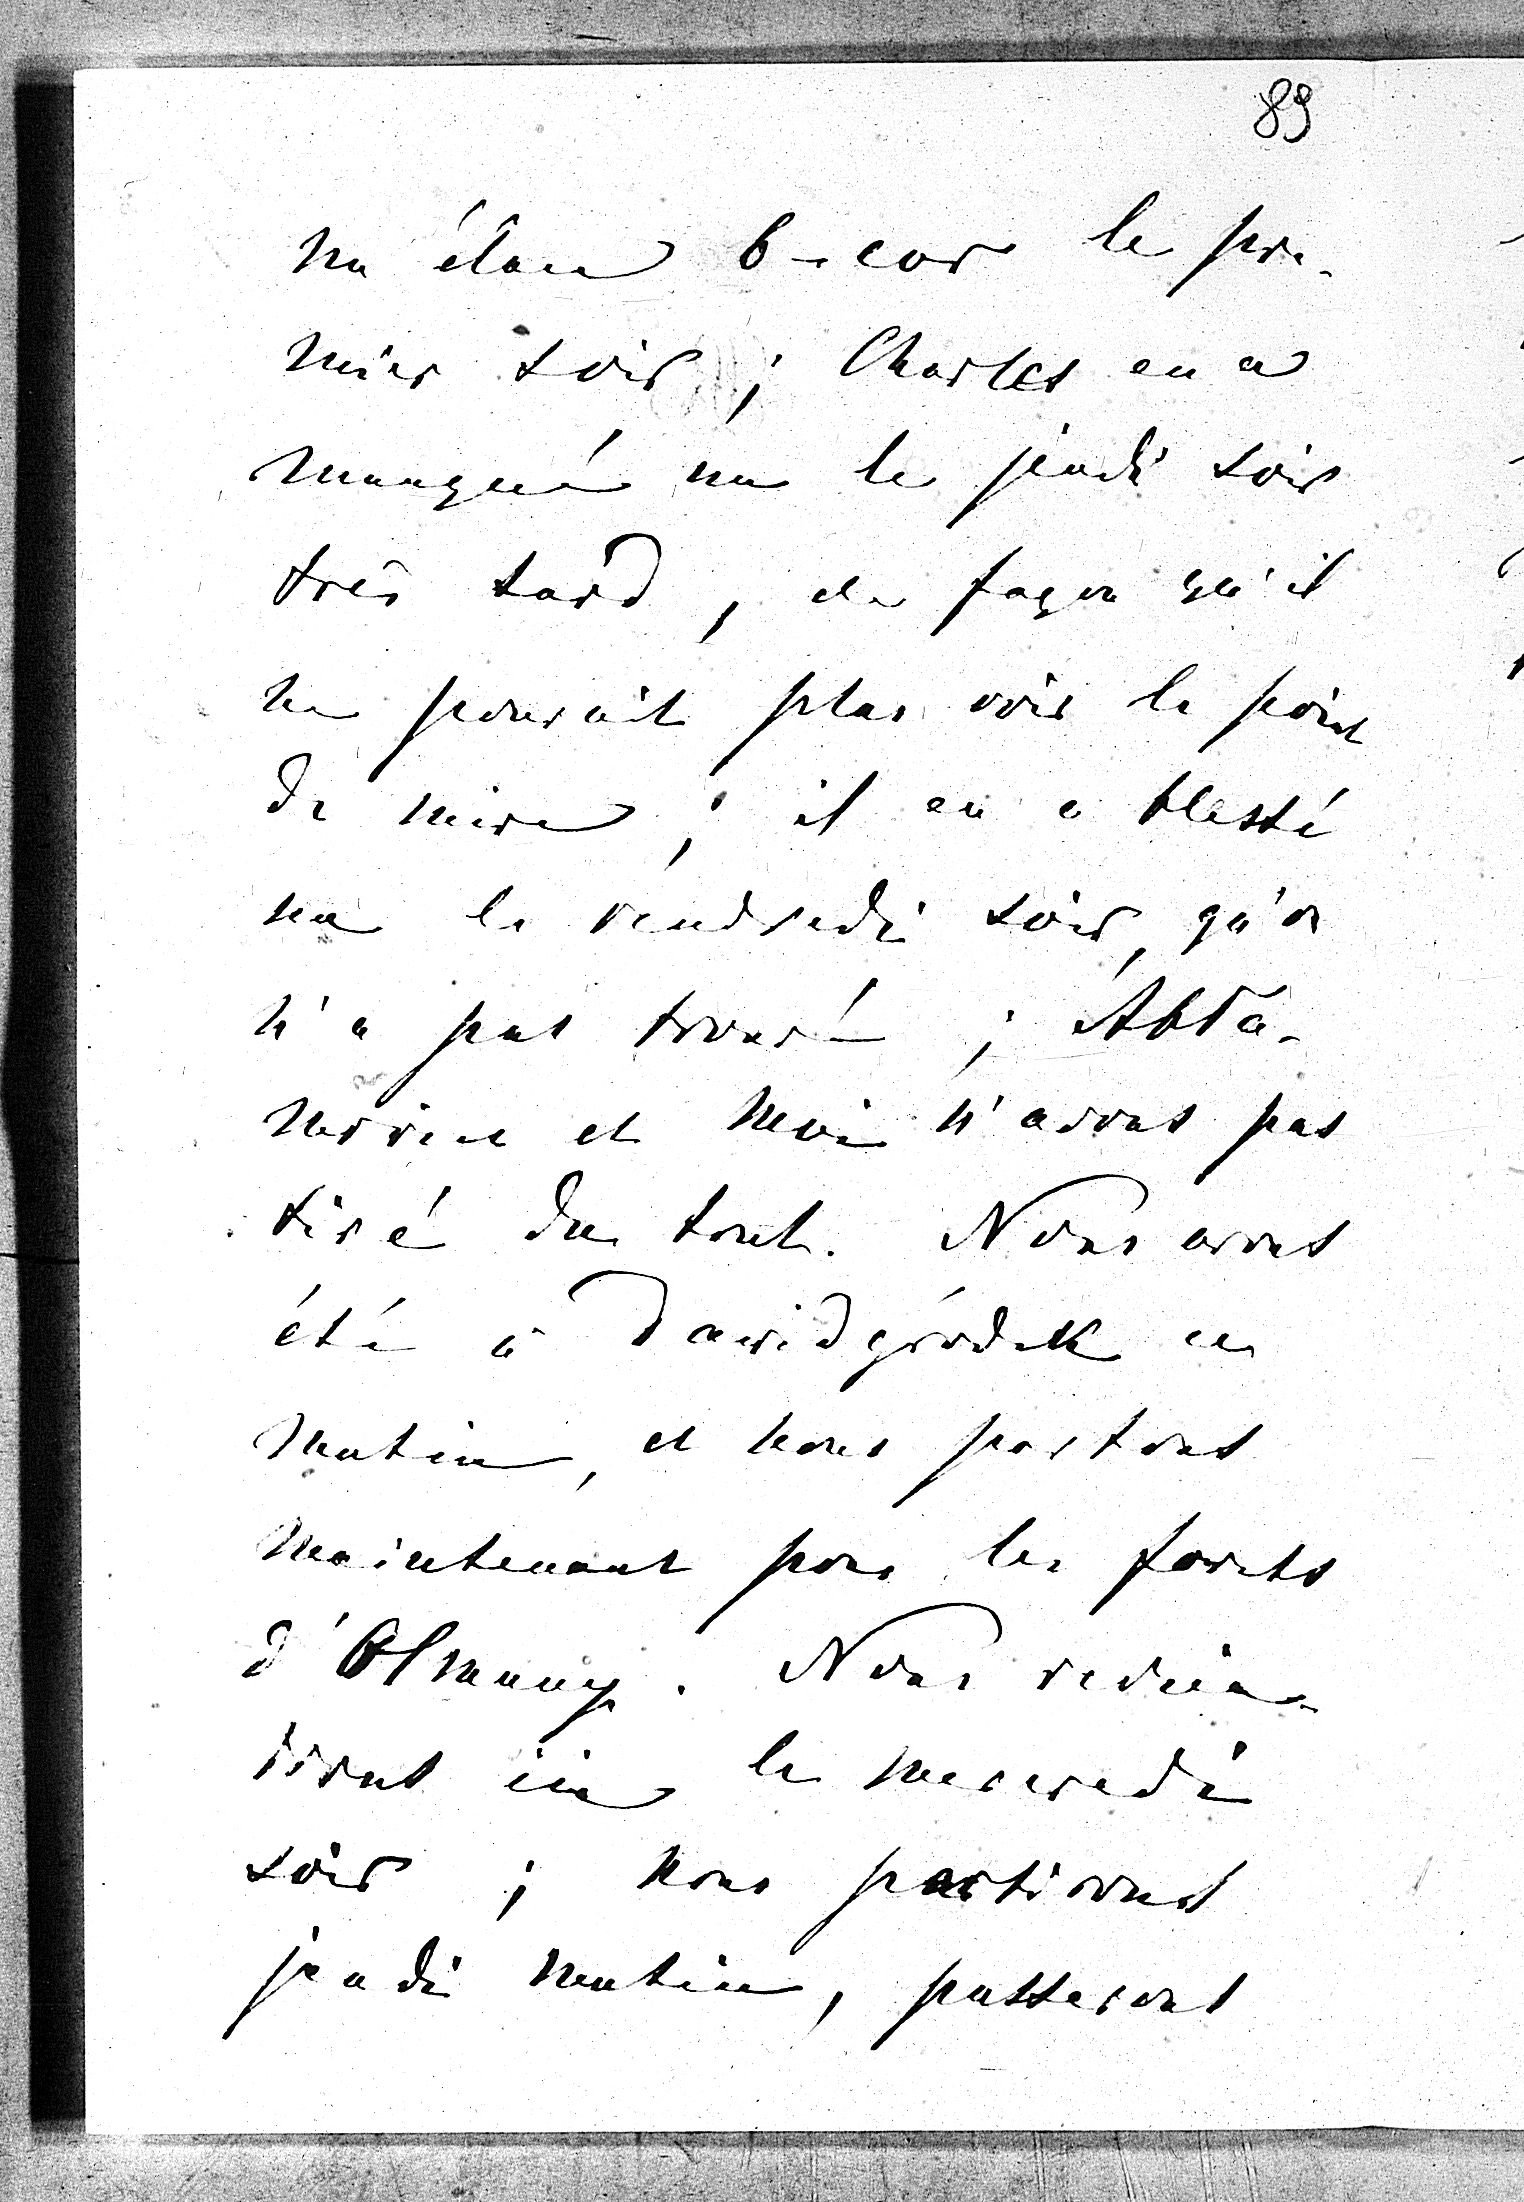 89
un élan 6-cors le pre-
mier soir ; Charles en a
manqué un le jeudi soir
très tard, de façon qu'il
ne pouvait plus voir le point
de mire ; il en a blessé
un le vendredi soir, qu'on
n'a pas trouvé ; Abra-
mowicz et moi n'avons pas
tiré du tout. Nous avons
été à Dawidgródek ce
matin, et nous partons
maintenant pour les forêts
d'Olmany. Nous revien-
drons ici le mercredi
soir ; nous partirons
jeudi matin, passerons